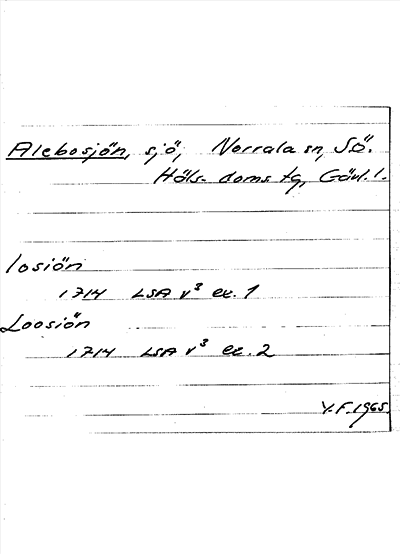 Alebosjön, sjö, Norrala sn, SÖ.
Häls. doms. tg, Gävl. l.
losiön
1714 LSA v³ ex. 1
Loosiön
1714 LSA v³ ex. 2
Y.F. 1965